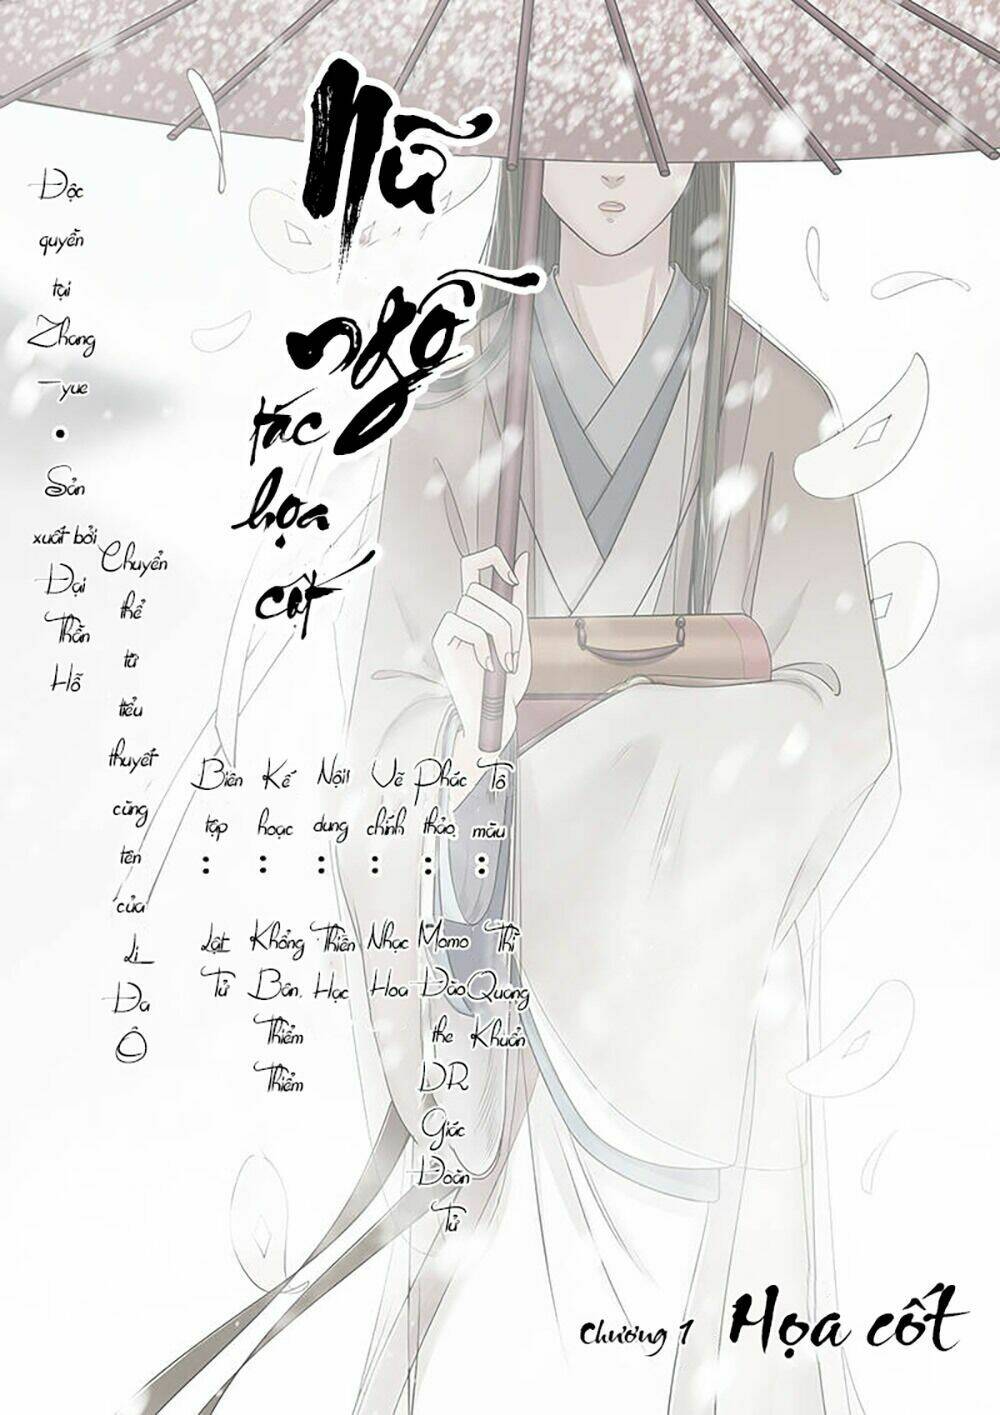 Nữ
ngỗ
tác
họa
cốt
Độc quyền tại Zhang-yue • Sản xuất bởi Đại Thần Hỗ
Chuyển thể từ tiểu thuyết cùng tên của Li Đa Ô
Biên tập : Lật Tử
Kế hoạc : Khổng Bân, Thiểm Thiểm
Nội dung : Thiền Hạc
Vẽ chính : Nhạc Hoa
Phác thảo : Momo Đào the DR Giác Đoàn Tử
Tô màu : Thì Quang Khuẩn
Chương 1 Họa cốt